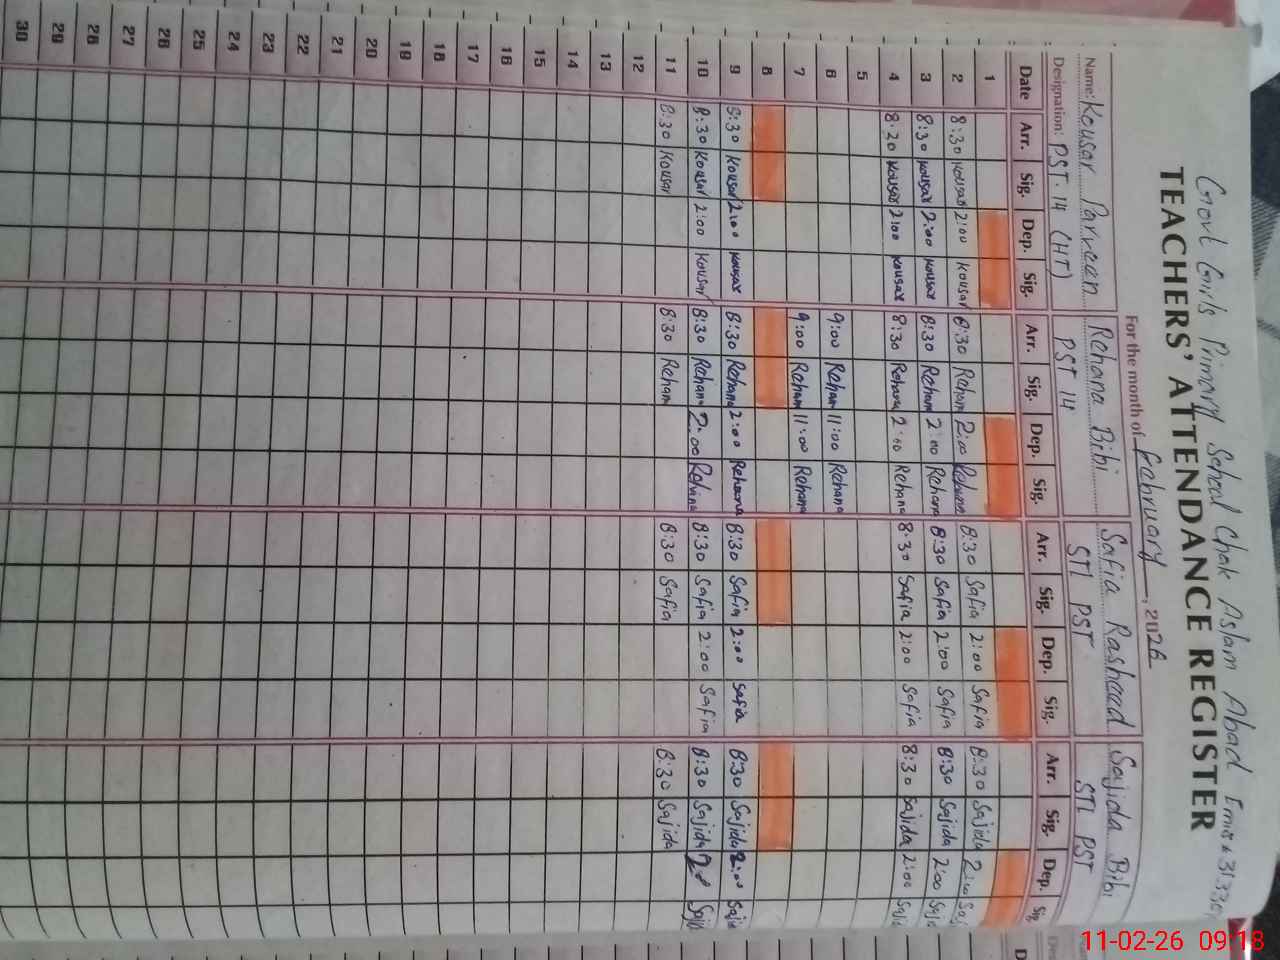 Govt Girls Primary School Chak Aslam Abad Emis # 31335
TEACHERS' ATTENDANCE REGISTER
For the month of February, 2026
Name: Kousar Parveen Rehana Bibi Safia Rasheed Sajida Bibi
Designation: PST-14 (HT) PST 14 STI PST STI PST
Date Arr. Sig. Dep. Sig. Arr. Sig. Dep. Sig. Arr. Sig. Dep. Sig. Arr. Sig. Dep. Sig.
1
2 8:30 Kousar 2:00 Kousar 8:30 Rehana 2:00 Rehana 8:30 Safia 2:00 Safia 8:30 Sajida 2:00 Saj
3 8:30 Kousar 2:00 Kousar 8:30 Rehana 2:00 Rehana 8:30 Safia 2:00 Safia 8:30 Sajida 2:00 Saj
4 8:30 Kousar 2:00 Kousar 8:30 Rehana 2:00 Rehana 8:30 Safia 2:00 Safia 8:30 Sajida 2:00 Saji
5
6 9:00 Rehana 11:00 Rehana
7 9:00 Rehana 11:00 Rehana
8
9 8:30 Kousar 2:00 Kousar 8:30 Rehana 2:00 Rehana 8:30 Safia 2:00 Safia 8:30 Sajida 2:00 Saji
10 8:30 Kousar 2:00 Kousar 8:30 Rehana 2:00 Rehana 8:30 Safia 2:00 Safia 8:30 Sajida Saji
11 8:30 Kousar 8:30 Rehana 8:30 Safia 8:30 Sajida
12
13
14
15
16
17
18
19
20
21
22
23
24
25
26
27
28
29
30
11-02-26 09:18